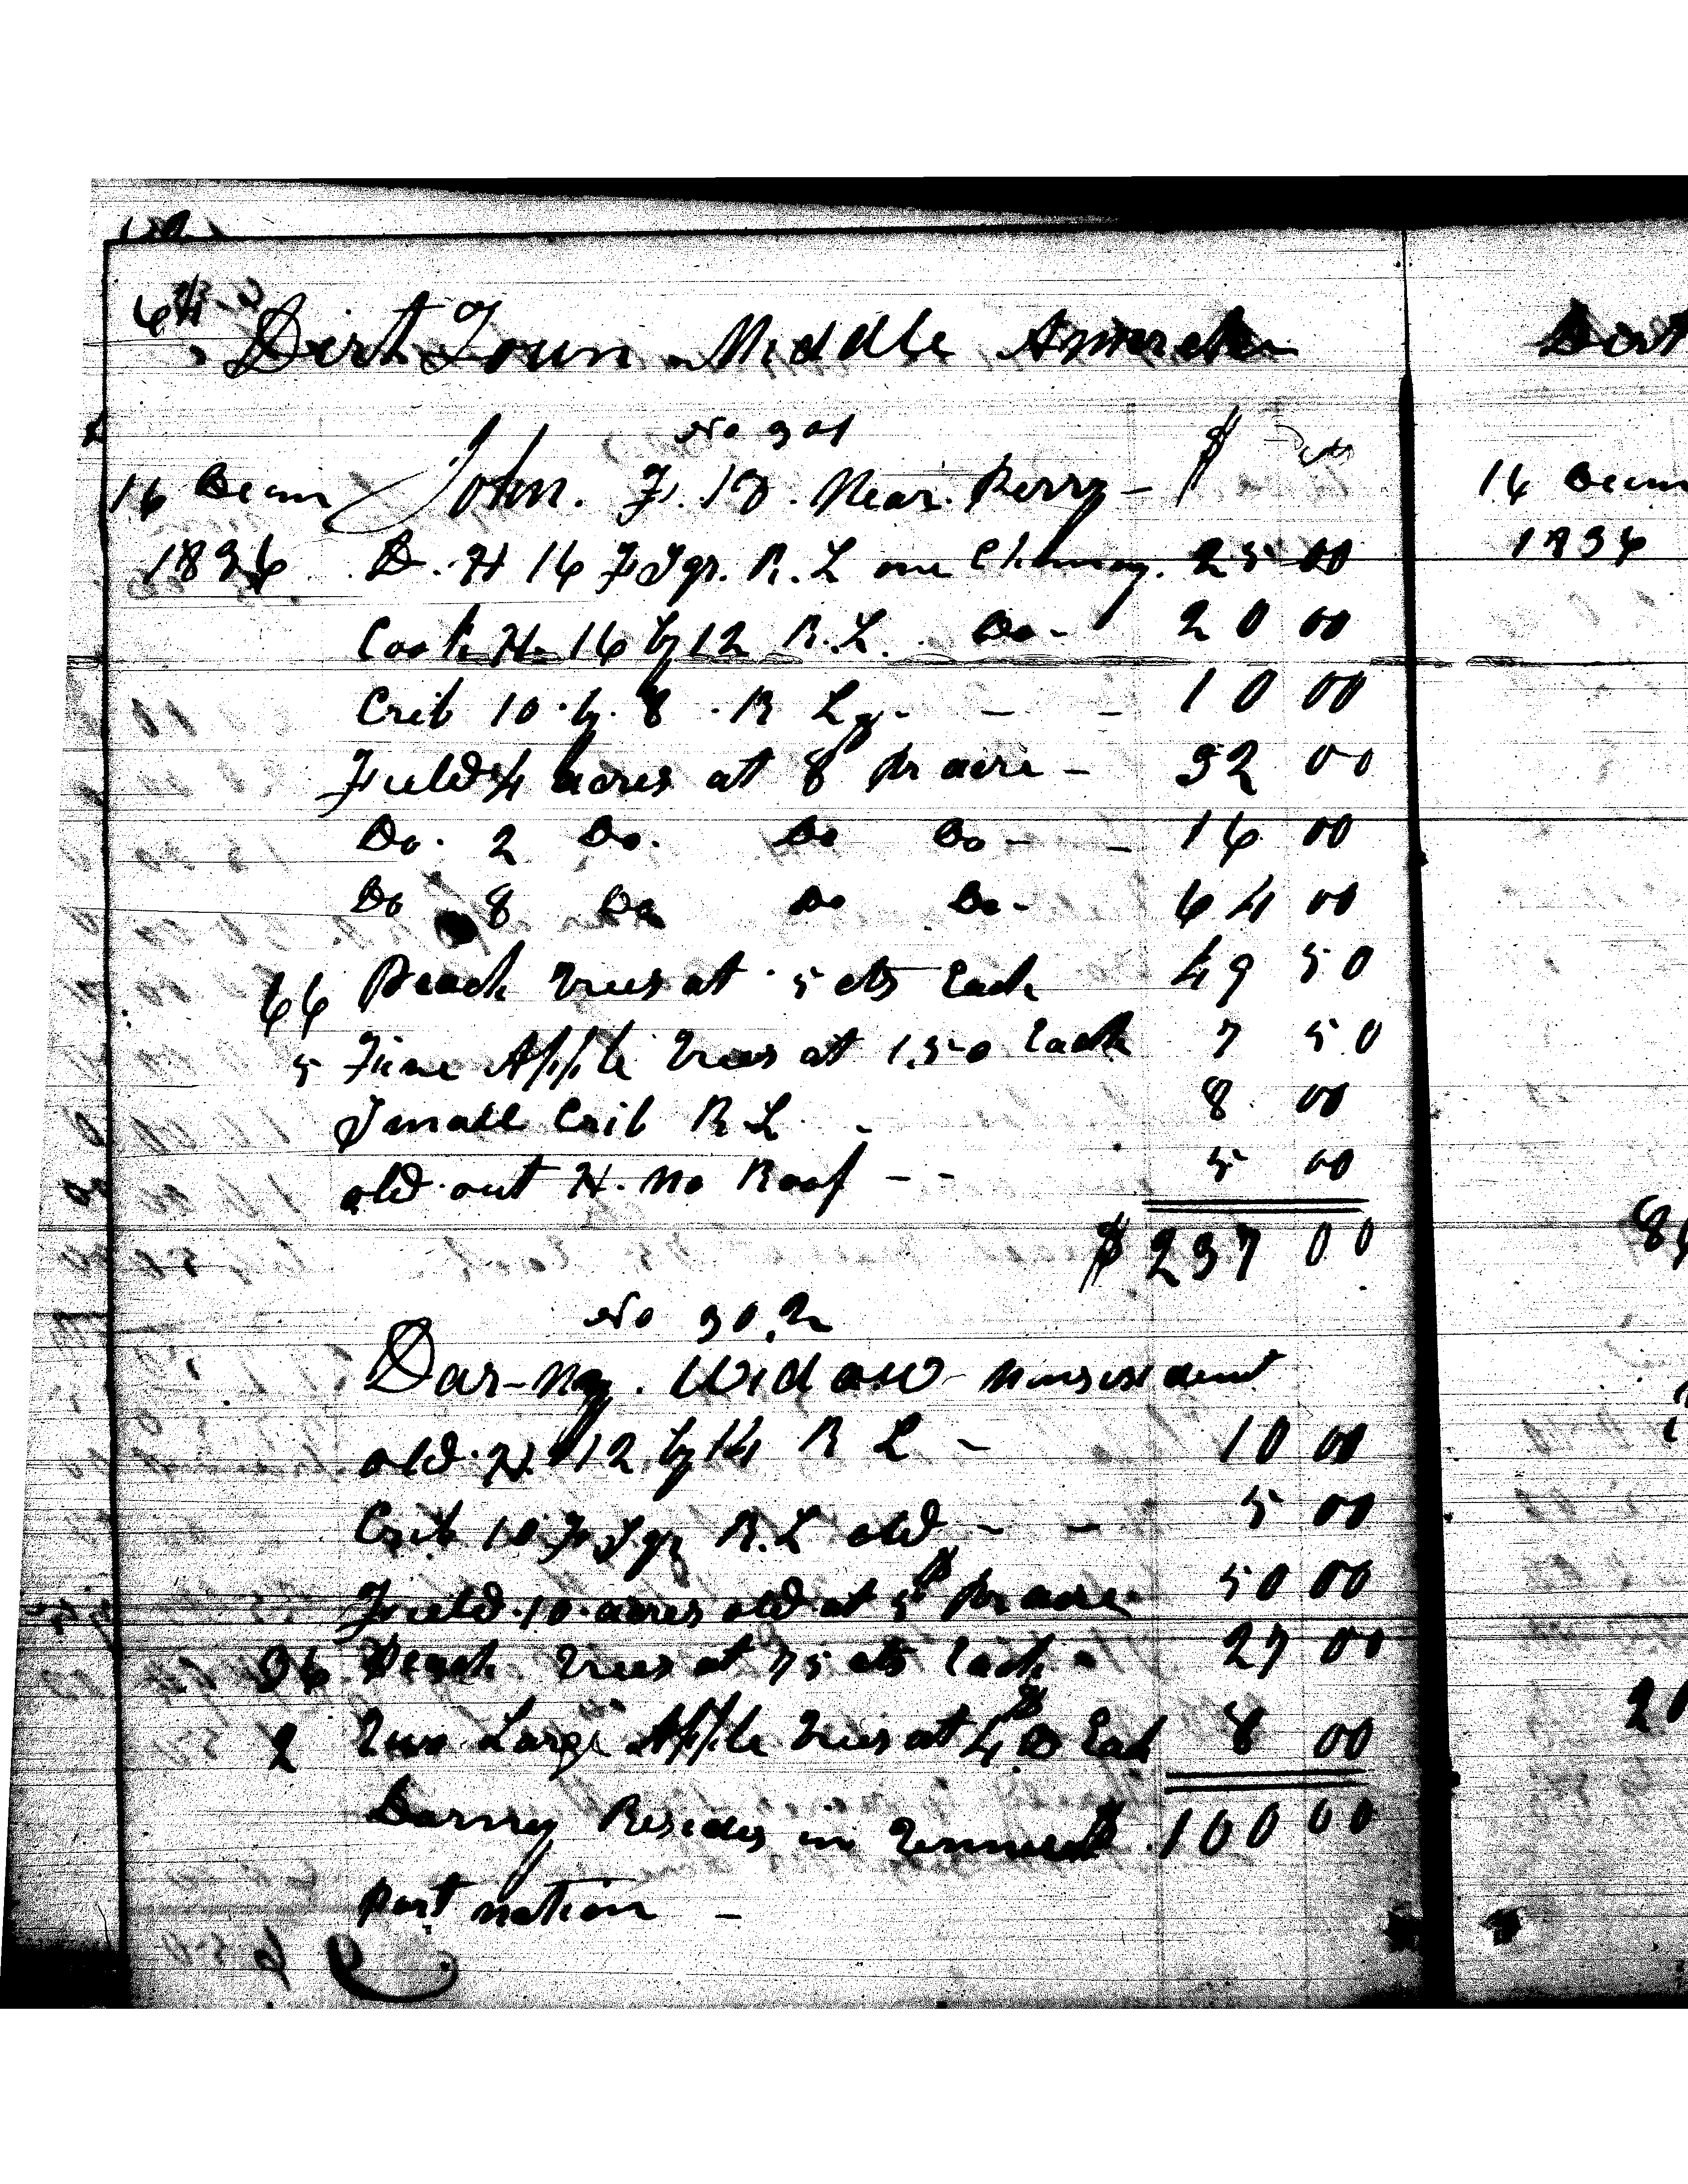 Dirt Town Middle
No 301
$ cts
16 Decm John. F. 12. Near. Perry -
1836 D. H 16 F Sqr. R. L one Chimney. 25 00
Cook H. 16 by 12 R. L. Do - 20 00
Crib 10 by 8 R Lg - - - 10 00
Field 4 acres at 8 pr acre - 32 00
Do. 2 Do. Do Do - - 16 00
Do 8 Do Do Do - 64 00
66 Peach trees at 5 cts Each 49 50
5 Fine Apple trees at 1.50 Each 7 50
Small Crib R L - 8 00
old out H. no Roof - - 5 00
$ 237 00
No 302
Dar-ny. Widow nonresident
old H. 12 by 14 R L - 10 00
Crib 10 F Sqr R. L old - - 5 00
Field 10 acres old at 5$ pr acre 50 00
36 Peach trees at 75 cts Each - 27 00
2 Two Large Apple trees at 4$ Each 8 00
Darny Resides in $ 100 00
part nation -
Dirt
16 Decm
1836